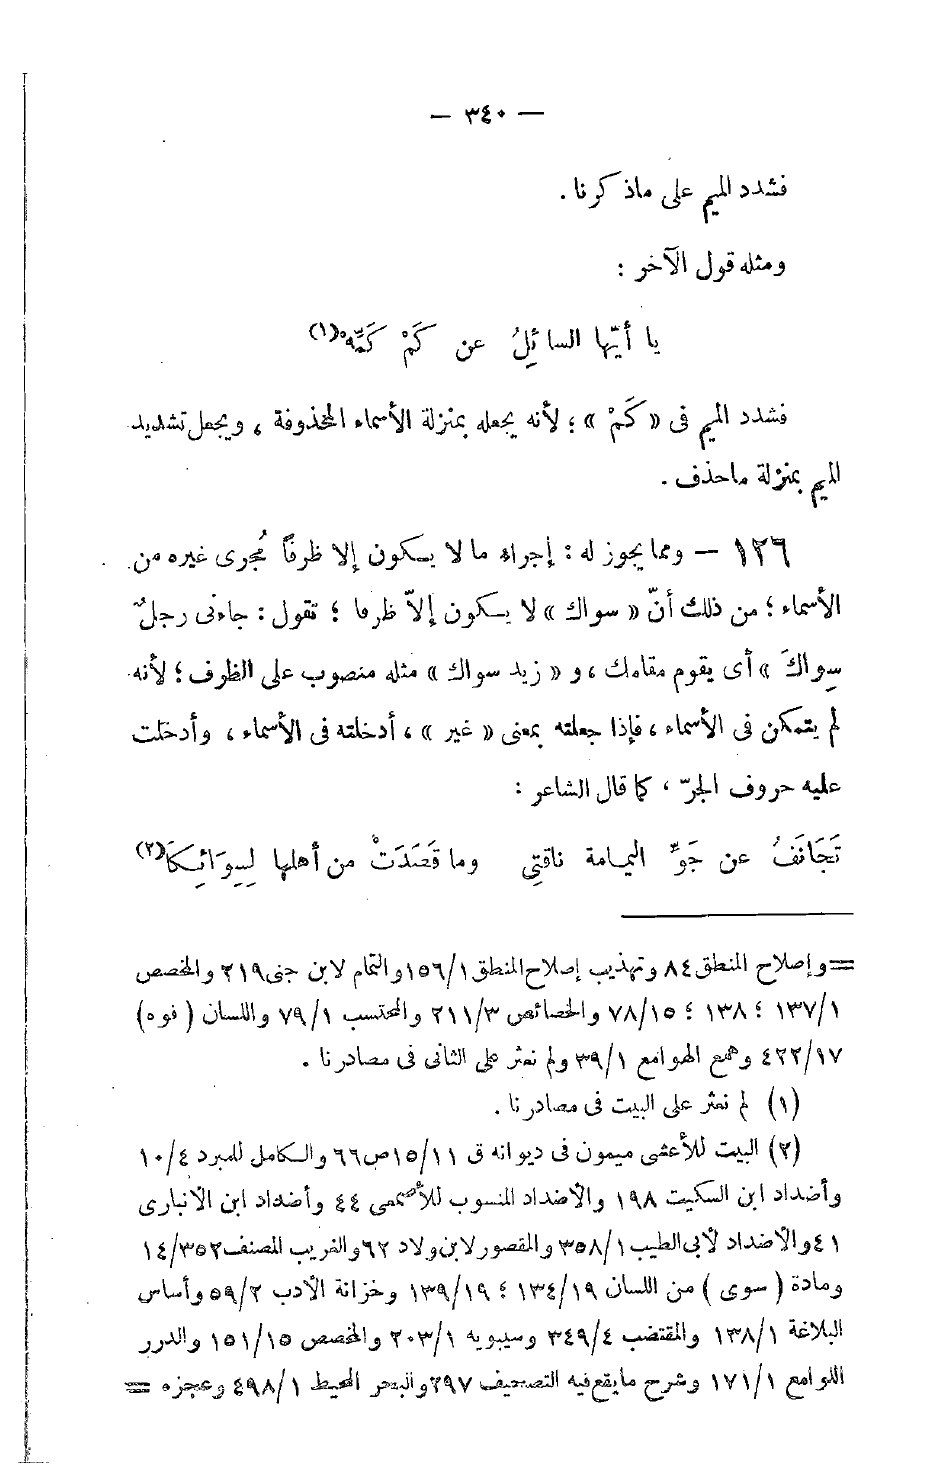 — ٣٤٠ —
فشدد الميم على ماذكرنا .
ومثله قول الآخر :
يا أيّها السائِلُ عن كَمْ كَمَّهْ(١)
فشدد الميم فى « كَمْ » ؛ لأنه يجعله بمنزلة الأسماء المحذوفة ، ويجعل تشديد
الميم بمنزلة ماحذف .
١٢٦ – ومما يجوز له : إجراء ما لا يكون إلا ظرفاً مُجرى غيره من
الأسماء ؛ من ذلك أنّ « سواك » لا يكون إلاّ ظرفا ؛ تقول : جاءنى رجلٌ
سِواكَ » أى يقوم مقامك ، و « زيد سواك » مثله منصوب على الظرف ؛ لأنه
لم يتمكن فى الأسماء ، فإذا جعلته بمعنى « غير » ، أدخلته فى الأسماء ، وأدخلت
عليه حروف الجرّ ، كما قال الشاعر :
تَجَانَفُ عن جَوِّ اليمامة ناقتِى وما قَصَدَتْ من أهلها لِسِوَائِكَا(٢)
=وإصلاح المنطق ٨٤ وتهذيب إصلاح المنطق ١/١٥٦ والتمام لابن جنى ٢١٩ والمخصص
١/١٣٧ ؛ ١٣٨ ؛ ١٥/٧٨ والخصائص ٣/٢١١ والمحتسب ١/٧٩ واللسان ( فوه )
١٧/٤٢٢ وهمع الهوامع ١/٣٩ ولم نعثر على الثانى فى مصادرنا .
(١) لم نعثر على البيت فى مصادرنا .
(٢) البيت للأعشى ميمون فى ديوانه ق ١١/١٥ ص٦٦ والكامل للمبرد ٤/١٠
وأضداد ابن السكيت ١٩٨ والأضداد المنسوب للأصمعى ٤٤ وأضداد ابن الأنبارى
٤١ والأضداد لأبى الطيب ١/٣٥٨ والمقصور لابن ولاد ٦٢ والغريب المصنف ١٤/٣٥٢
ومادة ( سوى ) من اللسان ١٩/١٣٤ ؛ ١٩/١٣٩ وخزانة الأدب ٢/٥٩ وأساس
البلاغة ١/١٣٨ والمقتضب ٤/٣٤٩ وسيبويه ١/٢٠٣ والمخصص ١٥/١٥١ والدرر
اللوامع ١/١٧١ وشرح مايقع فيه التصحيف ٢٩٧ والبحر المحيط ١/٤٩٨ وعجزه =